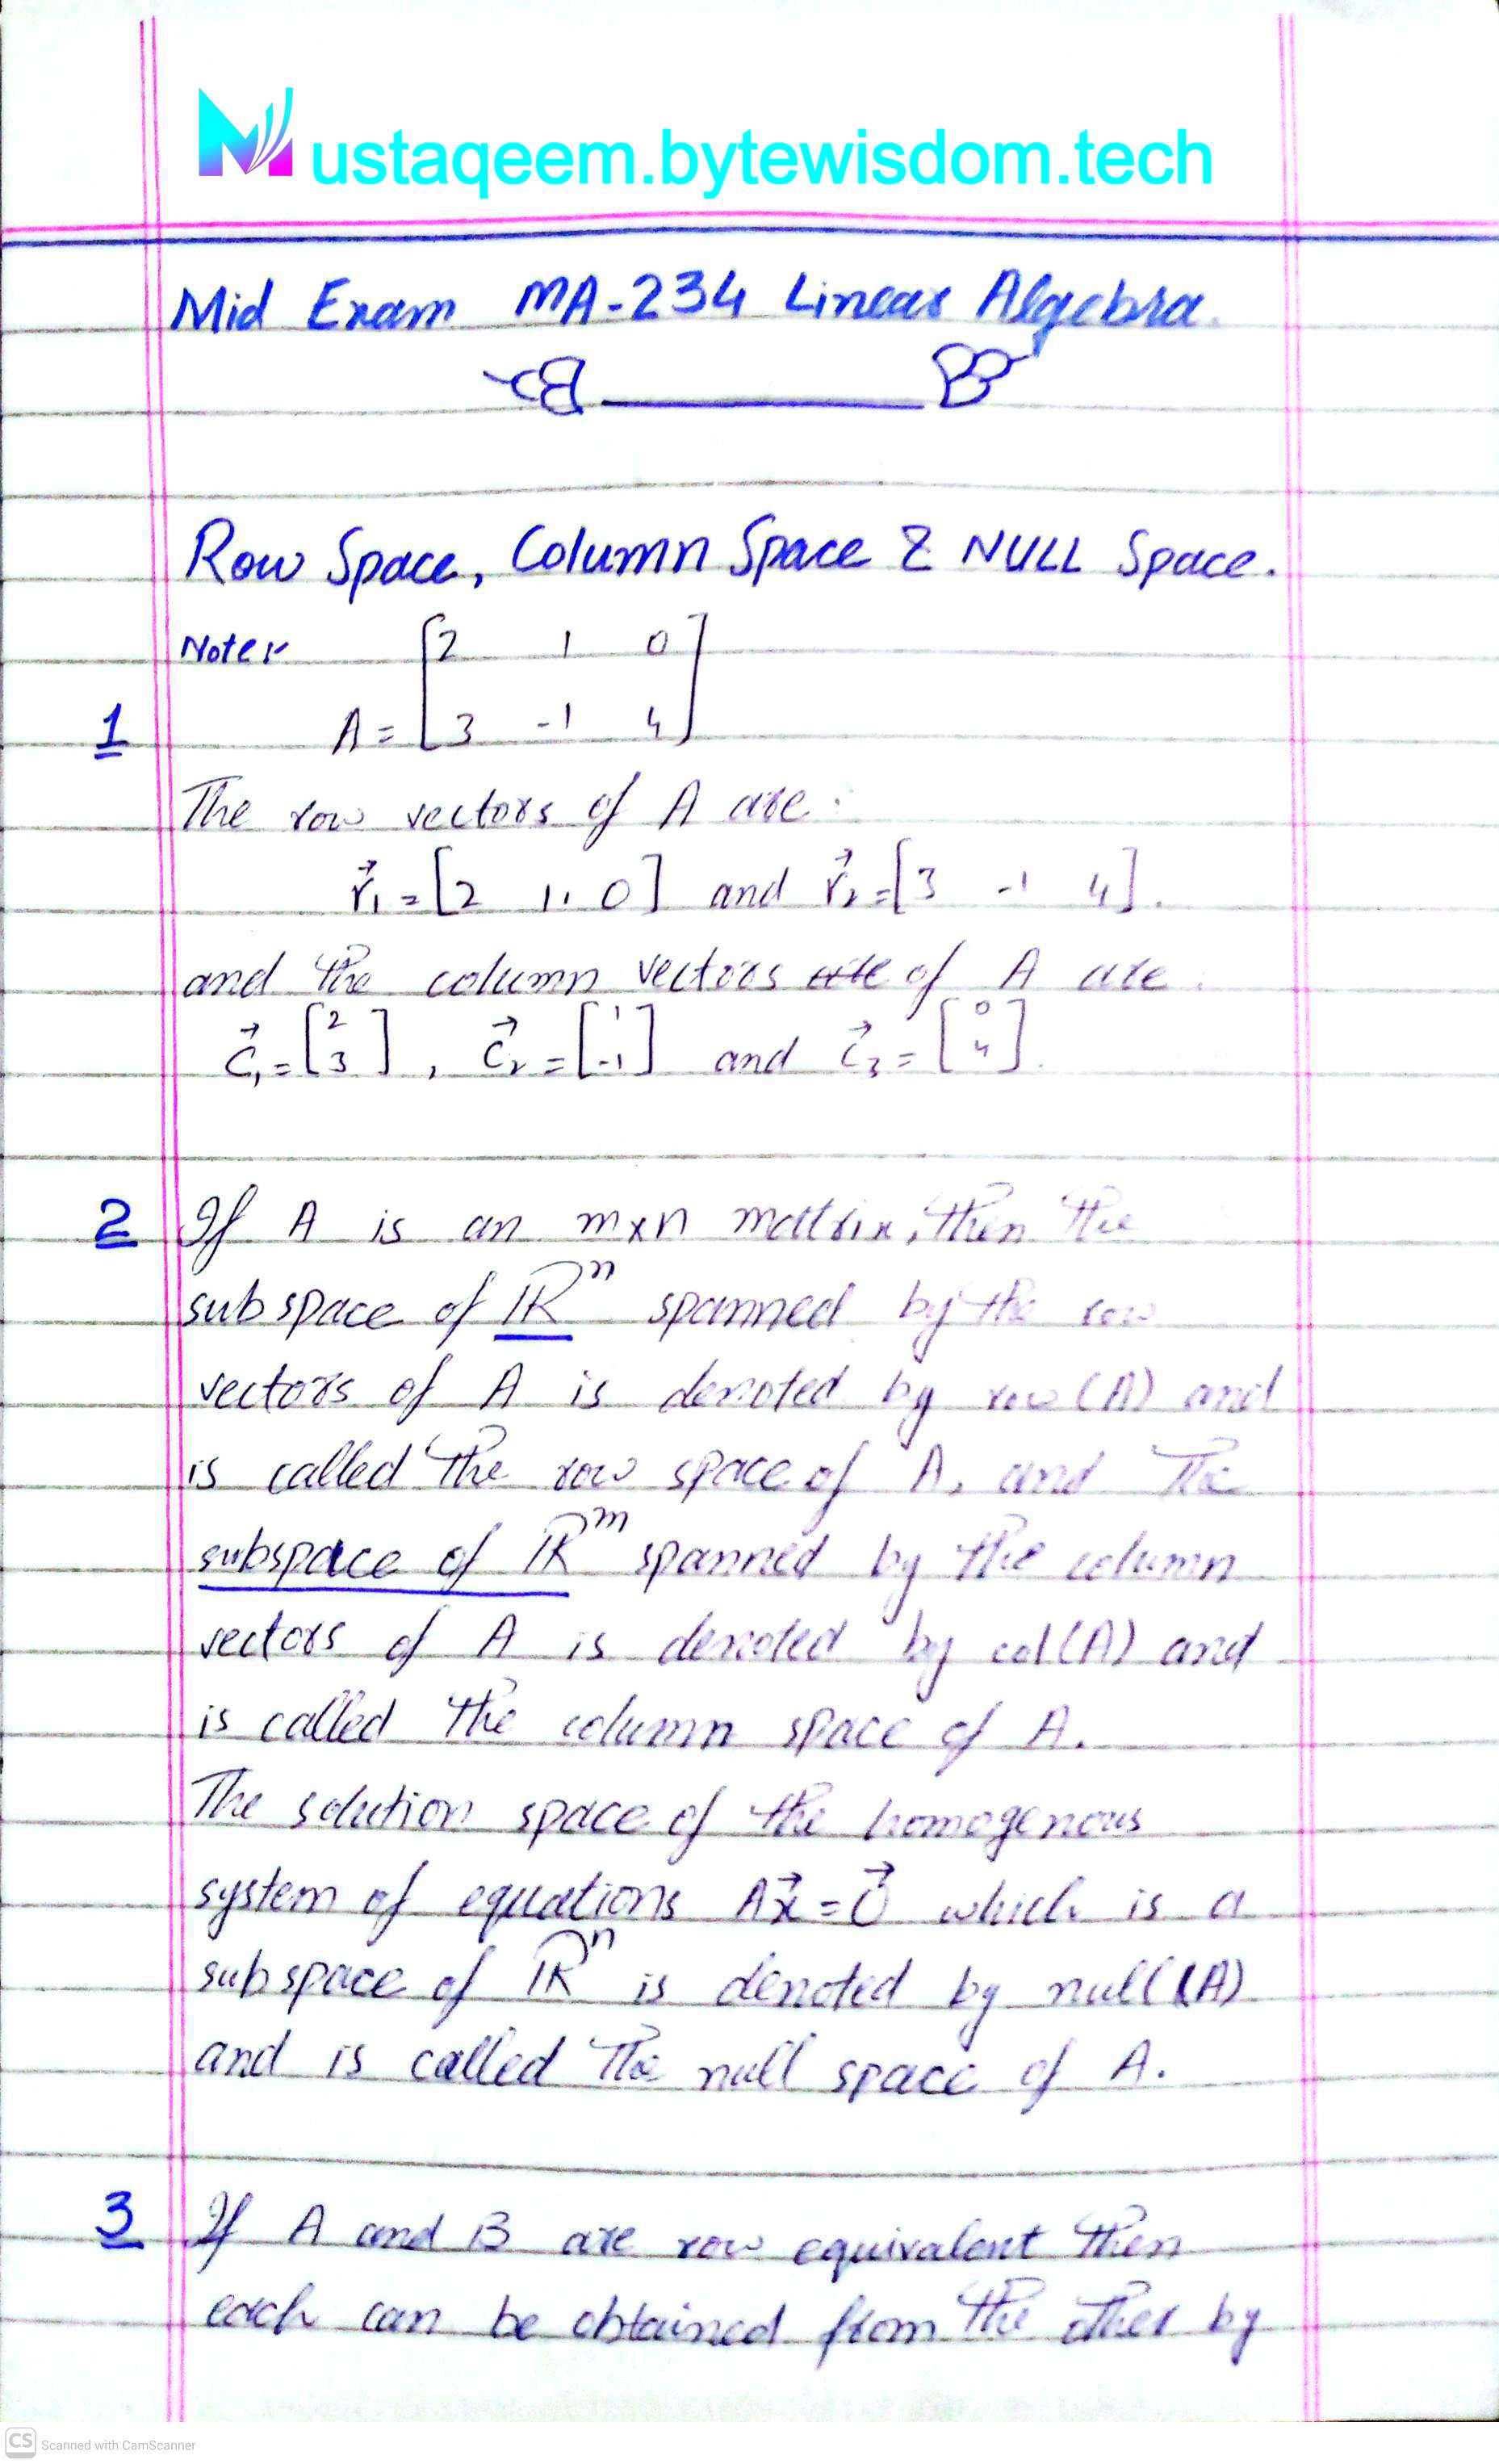 Mustaqeem.bytewisdom.tech
Mid Exam MA-234 Linear Algebra.
Row Space, Column Space & NULL Space.
Note:-
1 A = [2 1 0
3 -1 4]
The row vectors of A are:
r⃗1 = [2 1 0] and r⃗2 = [3 -1 4].
and the column vectors of A are
c⃗1 = [2 3], c⃗2 = [1 -1] and c⃗3 = [0 4].
2 If A is an m×n matrix, then the
subspace of ℝⁿ spanned by the row
vectors of A is denoted by row (A) and
is called the row space of A, and the
subspace of ℝᵐ spanned by the column
vectors of A is denoted by col(A) and
is called the column space of A.
The solution space of the homogenous
system of equations Ax⃗ = 0⃗ which is a
subspace of ℝⁿ is denoted by null(A)
and is called the null space of A.
3 If A and B are row equivalent then
each can be obtained from the other by
CS Scanned with CamScanner